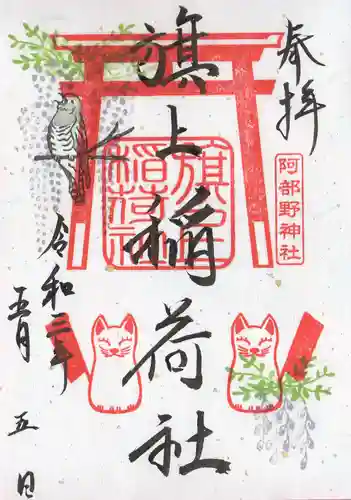 奉拝
阿部野神社
旗上稲荷社
旗上稲荷社
令和三年
五月
五日